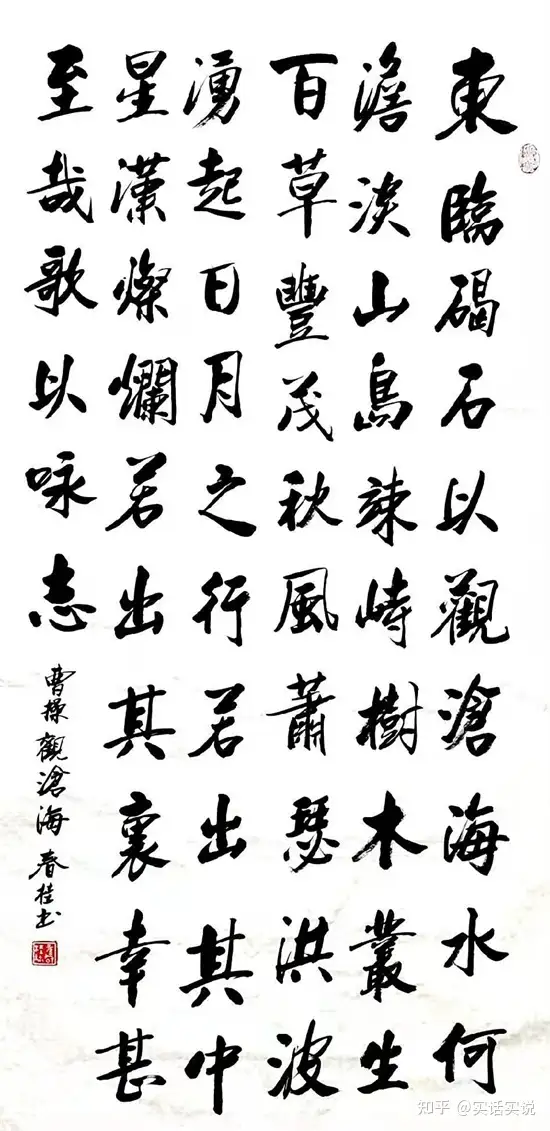 東臨碣石以觀滄海水何
澹淡山島竦峙樹木叢生
百草豐茂秋風蕭瑟洪波
湧起日月之行若出其中
星漢燦爛若出其裏幸甚
至哉歌以咏志
曹操觀滄海 春桂书
知乎 @实话实说